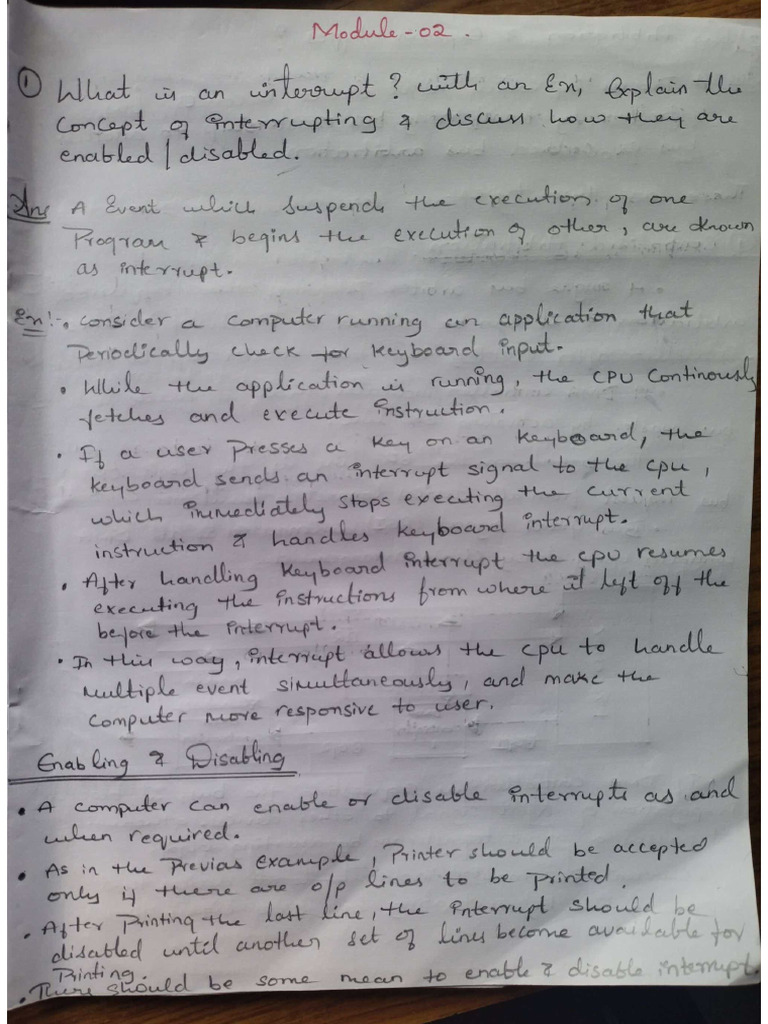 Module-02.
① What is an interrupt? with an Ex, Explain the
Concept of interrupting & discuss how they are
enabled/disabled.
Ans A Event which suspends the execution of one
Program & begins the execution of other, are known
as interrupt.
Ex:- • Consider a computer running an application that
Periodically check for keyboard input.
• While the application is running, the CPU Continously
fetches and execute instruction.
• If a user presses a key on an keyboard, the
keyboard sends an interrupt signal to the cpu,
which immediately stops executing the current
instruction & handles keyboard interrupt.
• After handling keyboard interrupt the cpu resumes
executing the instructions from where it left off the
before the interrupt.
• In this way, interrupt allows the cpu to handle
multiple event simultaneously, and make the
computer more responsive to user.
Enabling & Disabling
• A computer can enable or disable interrupts as and
when required.
• As in the Previas example, Printer should be accepted
only if there are o/p lines to be printed.
• After Printing the last line, the interrupt should be
disabled until another set of lines become available for
Printing.
• There should be some mean to enable & disable interrupt.